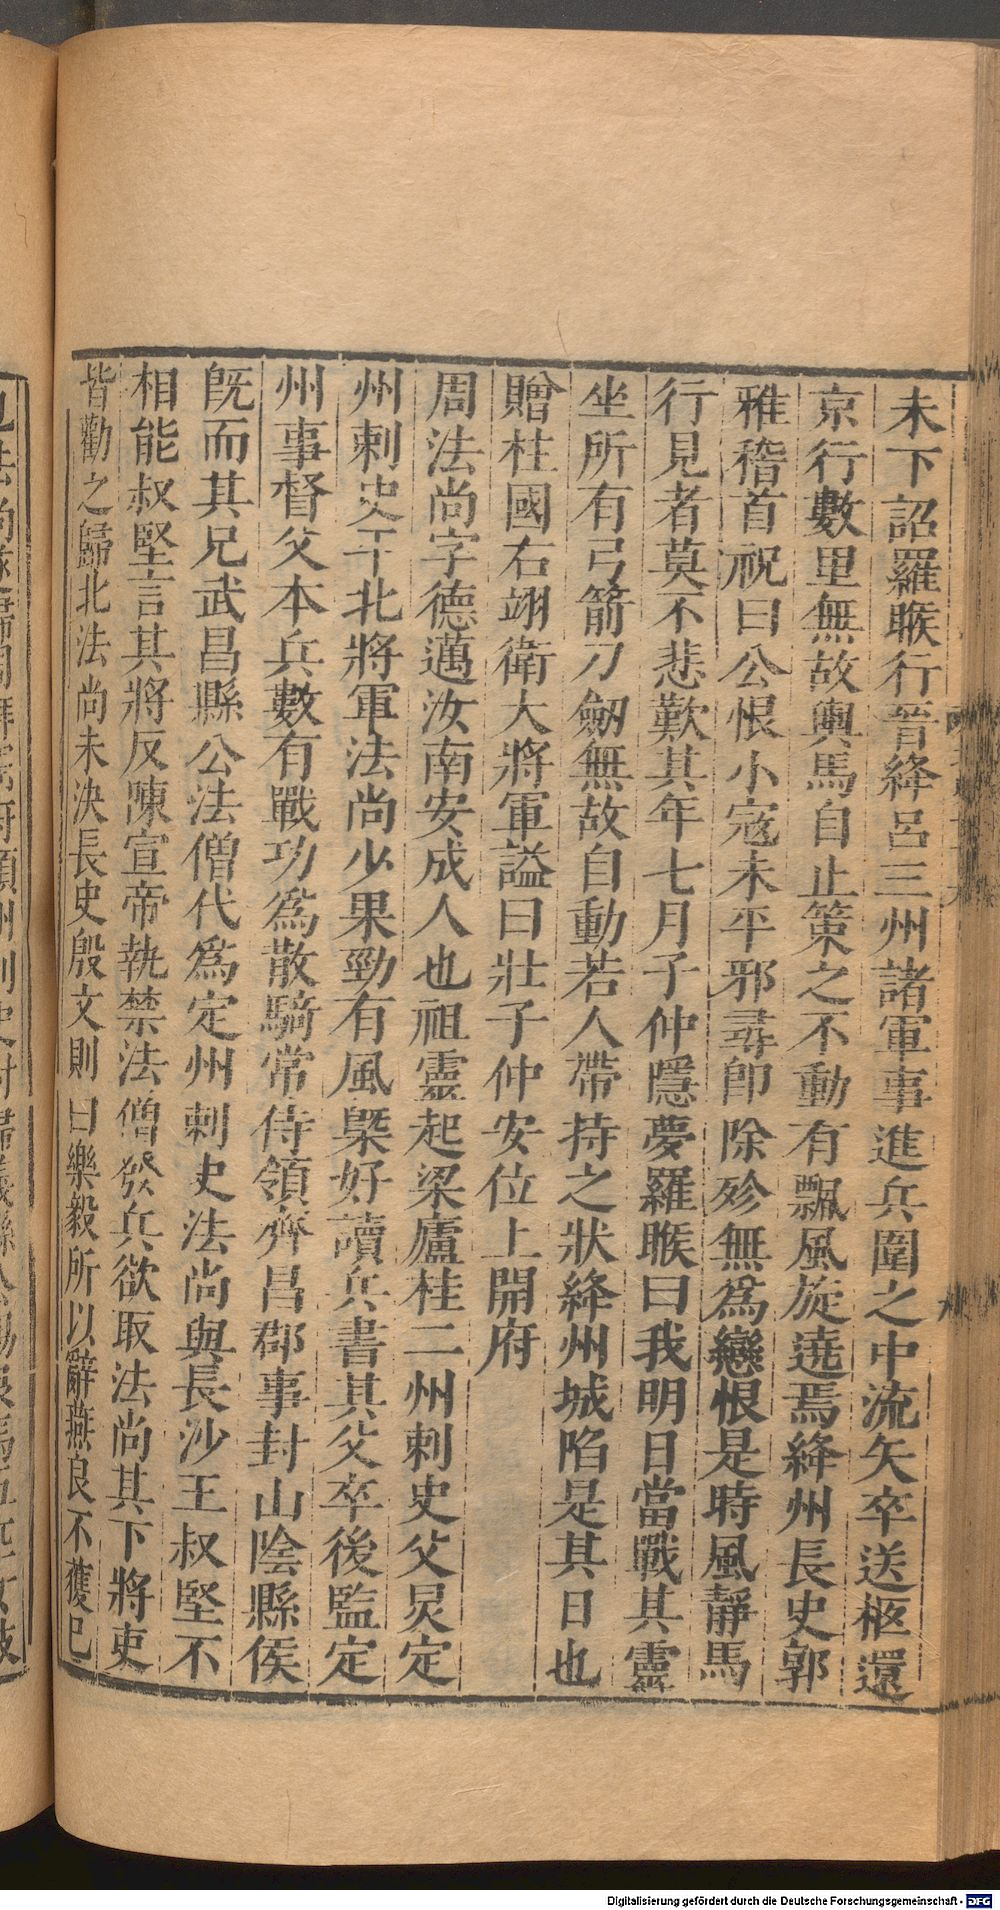 未下詔羅睺行晉絳呂三州諸軍事進兵圍之中流矢卒送柩還
京行數里無故輿馬自止策之不動有飄風旋遶焉絳州長史郭
雅稽首祝曰公恨小寇未平邪尋卽除殄無爲戀恨是時風靜馬
行見者莫不悲歎其年七月子仲隱夢羅睺曰我明日當戰其靈
坐所有弓箭刀劒無故自動若人帶持之狀絳州城陷是其日也
贈柱國右翊衛大將軍謚曰壯子仲安位上開府
周法尚字德邁汝南安成人也祖靈起梁廬桂二州剌史父炅定
州剌史平北將軍法尚少果勁有風槩好讀兵書其父卒後監定
州事督父本兵數有戰功爲散騎常侍領齊昌郡事封山陰縣侯
旣而其兄武昌縣公法僧代爲定州剌史法尚與長沙王叔堅不
相能叔堅言其將反陳宣帝執禁法僧發兵欲取法尚其下將吏
皆勸之歸北法尚未決長史殷文則曰樂毅所以辭燕良不獲已
Digitalisierung gefördert durch die Deutsche Forschungsgemeinschaft - DFG